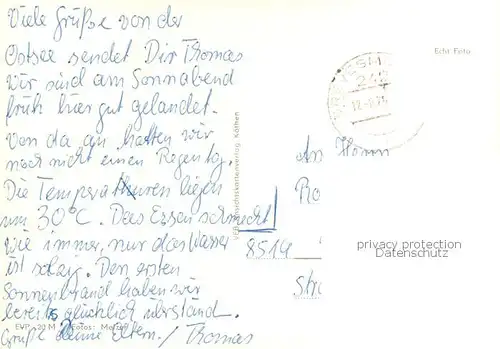 Viele Grüße von der
Ostsee sendet Dir Thomas
Wir sind am Sonnabend
früh hier gut gelandet.
Von da an hatten wir
noch nicht einen Regentg.
Die Temperaturen liegen
um 30°C. Das Essen schmeckt
wie immer, nur das Wasser
ist salzig. Den ersten
Sonnenbrand haben wir
bereits glücklich überstand.
Grüße deine Eltern. / Thomas
EVP: -20 M Fotos:
Köthen
Echt Foto
242
An Herrn
Ro
8514
Str
privacy protection
Datenschutz